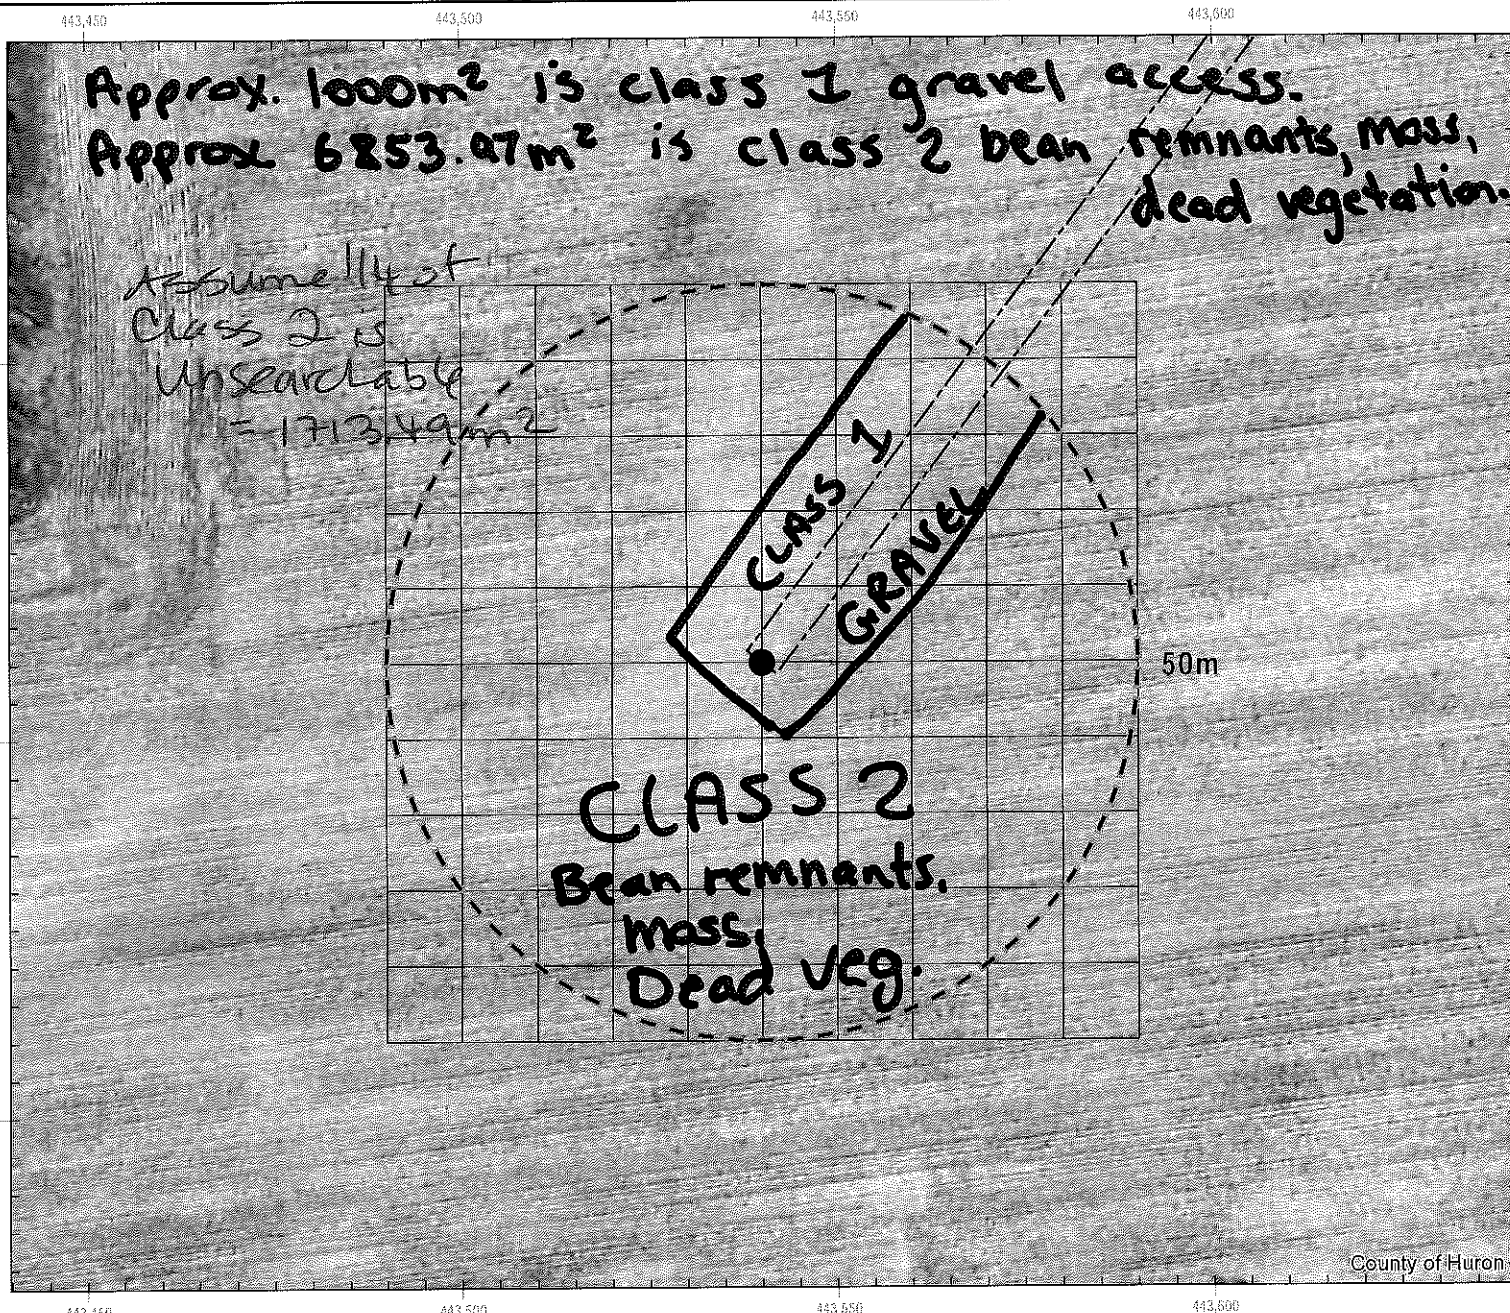 443,450 443,500 443,550 443,600
Approx. 1000m² is class 1 gravel access.
Approx 6853.97m² is class 2 bean remnants, moss,
dead vegetation.
Assume 1/4 of
Class 2 is
Unsearchable
= 1713.49m²
CLASS 1
GRAVEL
50m
CLASS 2
Bean remnants,
moss,
Dead veg.
County of Huron
443,500 443,550 443,600